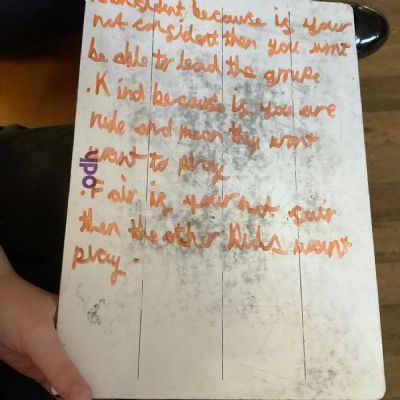 consident because is your
not considert then you wont
be able to lead the grupe
.Kind because is you are
rude and mean they wont
want to play
.Fair is your not fair
then the other kids wont
play.
upo